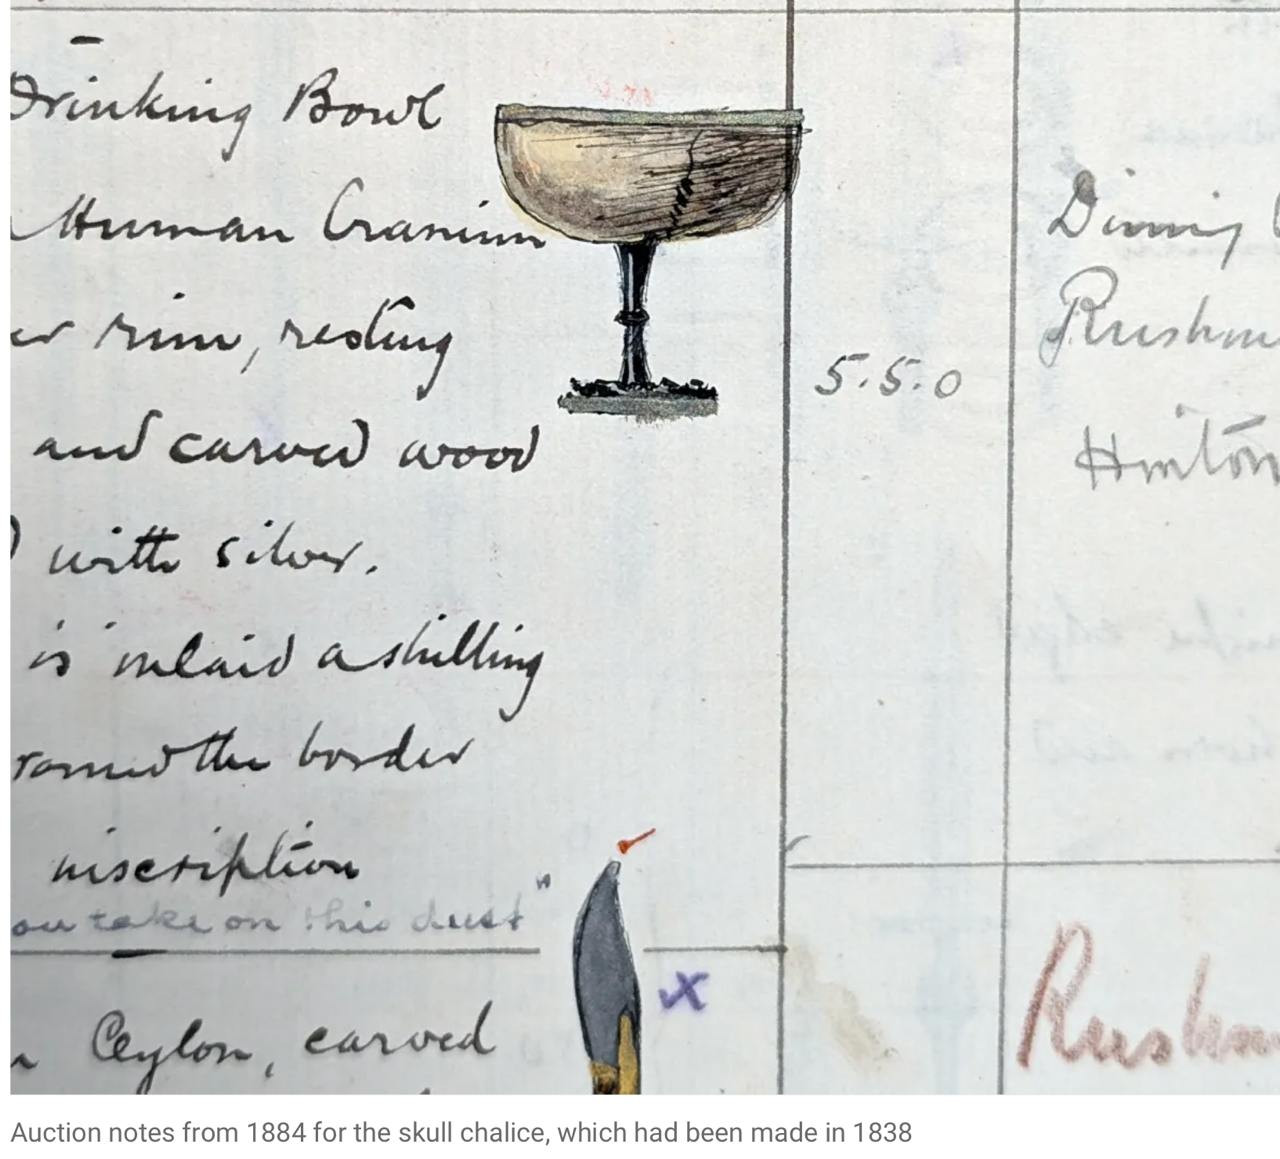 Drinking Bowl
Human Cranium
rim, resting
and carved wood
with silver.
is inlaid a shilling
round the border
inscription
ou take on this dust"
Ceylon, carved
x
5.5.0
Dining
Rushm
Hinton
Rushm
Auction notes from 1884 for the skull chalice, which had been made in 1838